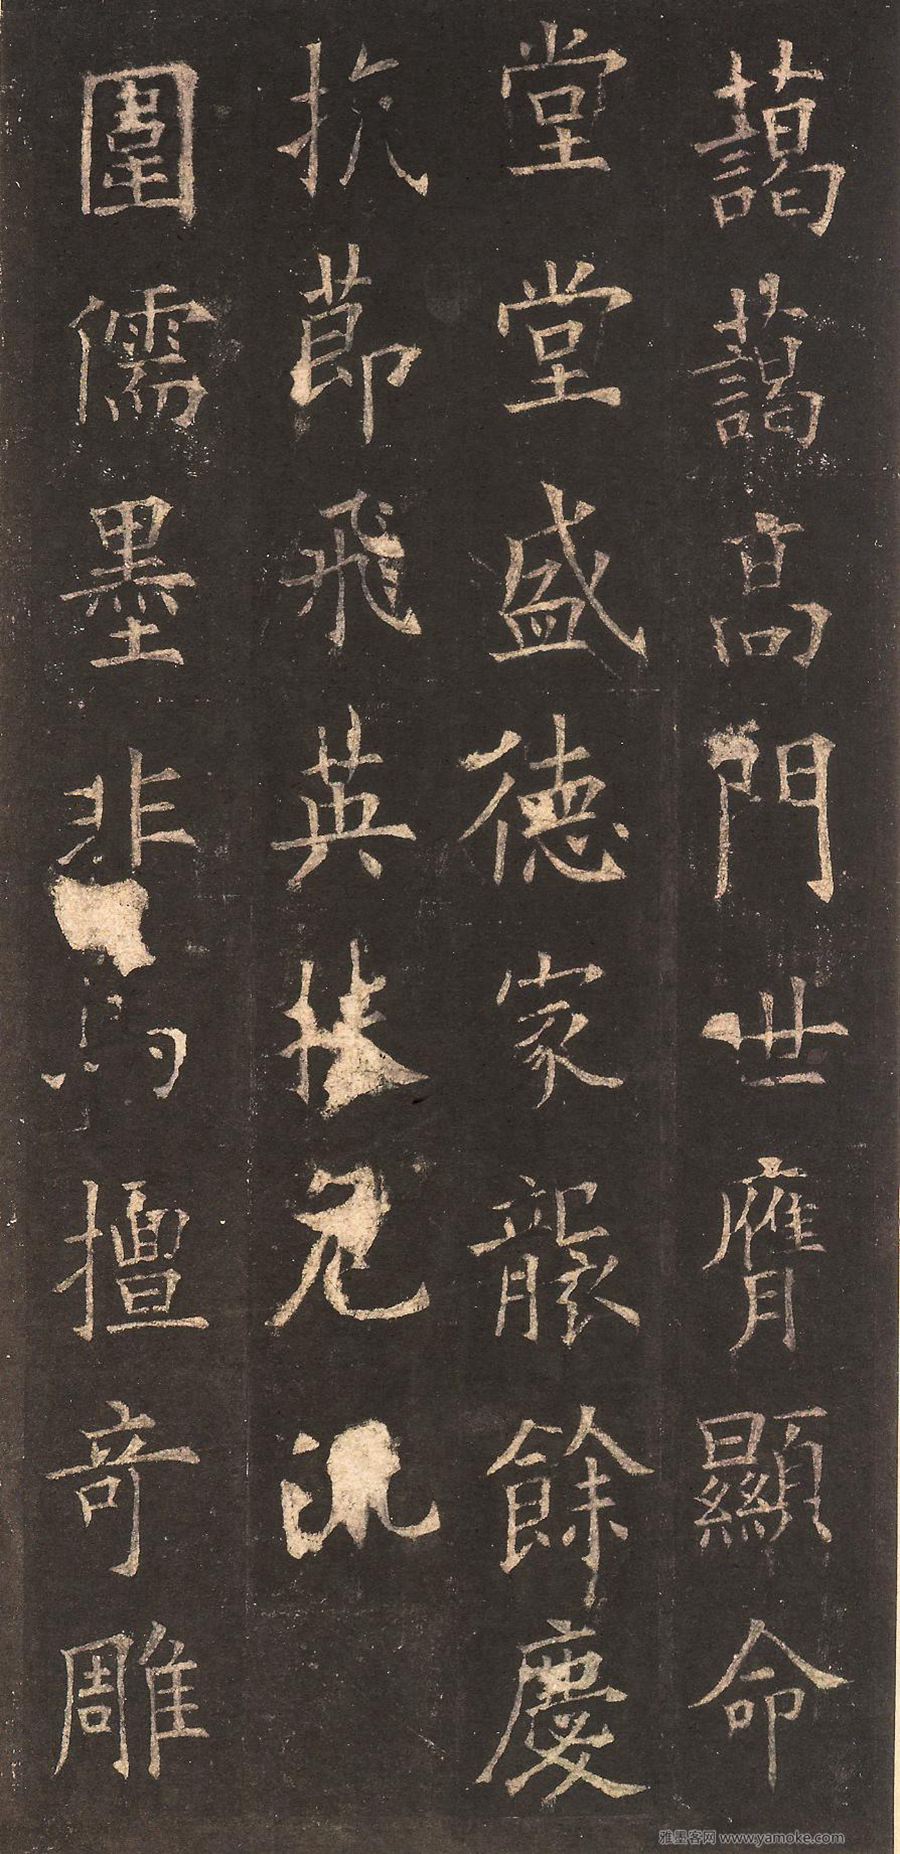 藹藹高門世膺顯命
堂堂盛德家襲餘慶
抗莭飛英扶危汎
圍儒墨非馬擅奇雕
雅墨客网 www.yamoke.com